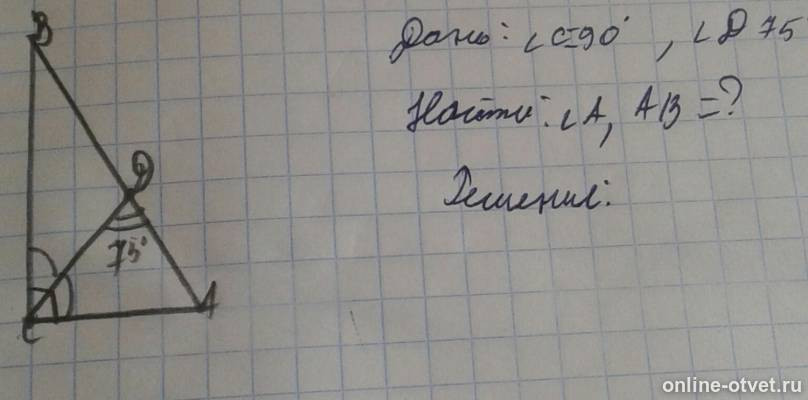 Дано: ∠C=90°, ∠D 75
Найти: ∠A, AB=?
Решение:
B
D
75°
C
A
online-otvet.ru